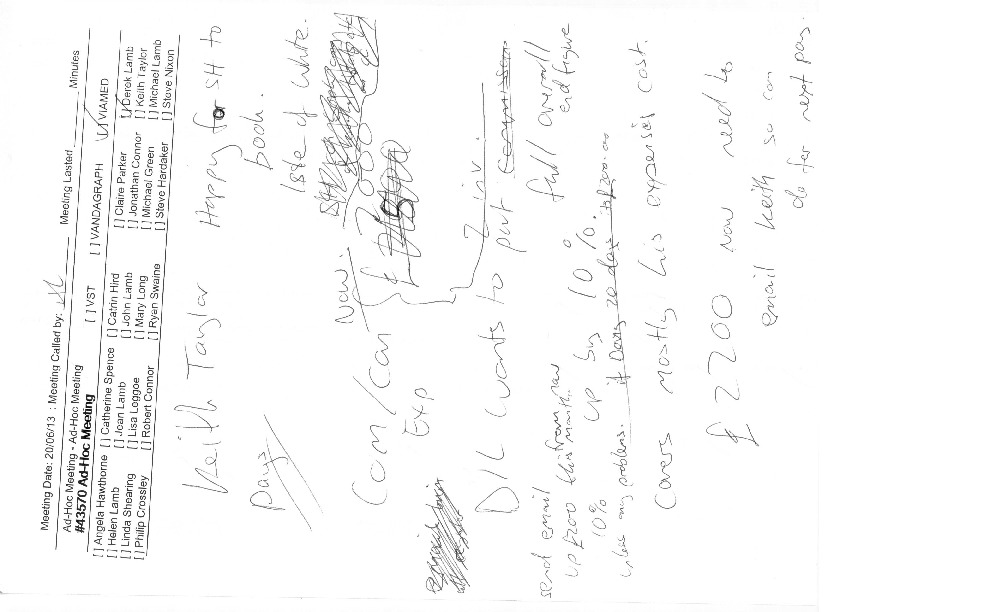 Meeting Date: 20/06/13 : Meeting Called by: Meeting Lasted Minutes
Ad-Hoc Meeting - Ad-Hoc Meeting
#43570 Ad-Hoc Meeting [ ] VST [ ] VANDAGRAPH [ ] VIAMED
[ ] Angela Hawthorne [ ] Catherine Spence [ ] Catrin Hird [ ] Claire Parker [ ] Derek Lamb
[ ] Helen Lamb [ ] Joan Lamb [ ] John Lamb [ ] Jonathan Connor [ ] Keith Taylor
[ ] Linda Shearing [ ] Lisa Loggoe [ ] Mary Long [ ] Michael Green [ ] Michael Lamb
[ ] Philip Crossley [ ] Robert Connor [ ] Ryan Swaine [ ] Steve Hardaker [ ] Steve Nixon
Keith Taylor Happy for SH to
Days book.
Isle of White.
Now.
Com / Car £ 2000
Exp
2 inv
D/L wants to put
full overall
end figure
send email
up £200 from now
this month
up by 10%.
10%
unless any problems.
Covers mostly his expenses cost.
£2200 now need to
email Keith so can
do for next pay.